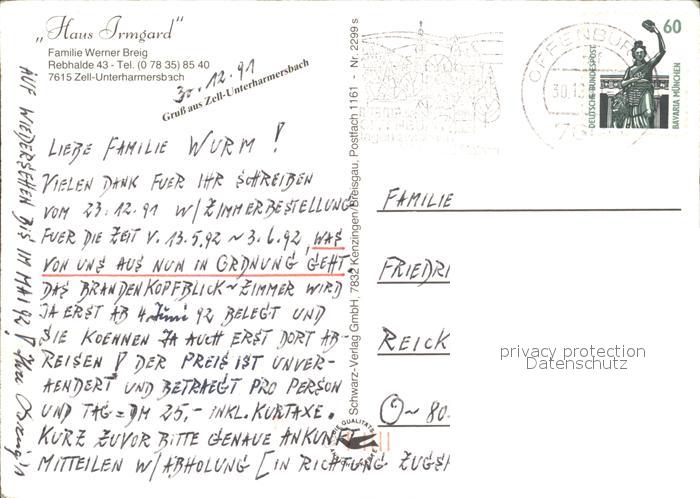 „Haus Irmgard"
Familie Werner Breig
Rebhalde 43 - Tel. (0 78 35) 85 40
7615 Zell-Unterharmersbach
30.12.91
Gruß aus Zell-Unterharmersbach
LIEBE FAMILIE WURM !
VIELEN DANK FUER IHR SCHREIBEN
VOM 23.12.91 W/ZIMMERBESTELLUNG
FUER DIE ZEIT V. 13.5.92 ~ 3.6.92, WAS
VON UNS AUS NUN IN ORDNUNG GEHT.
DAS BRANDENKOPFBLICK~ZIMMER WIRD
JA ERST AB 4. Juni 92 BELEGT UND
SIE KOENNEN JA AUCH ERST DORT AB-
REISEN ! DER PREIS IST UNVER-
AENDERT UND BETRAEGT PRO PERSON
UND TAG = DM 25,- INKL. KURTAXE.
KURZ ZUVOR BITTE GENAUE ANKUNFT
MITTEILEN W/ABHOLUNG [IN RICHTUNG
AUF WIEDERSEHEN BIS IM MAI 92 !
Schwarz-Verlag GmbH, 7832 Kenzingen/Breisgau, Postfach 1161 - Nr. 2299 s
DIE QUALITÄTS
OFFENBUR
30.12
60
DEUTSCHE BUNDESPOST
BAVARIA MÜNCHEN
FAMILIE
FRIEDRI
REICK
O~80.
privacy protection
Datenschutz